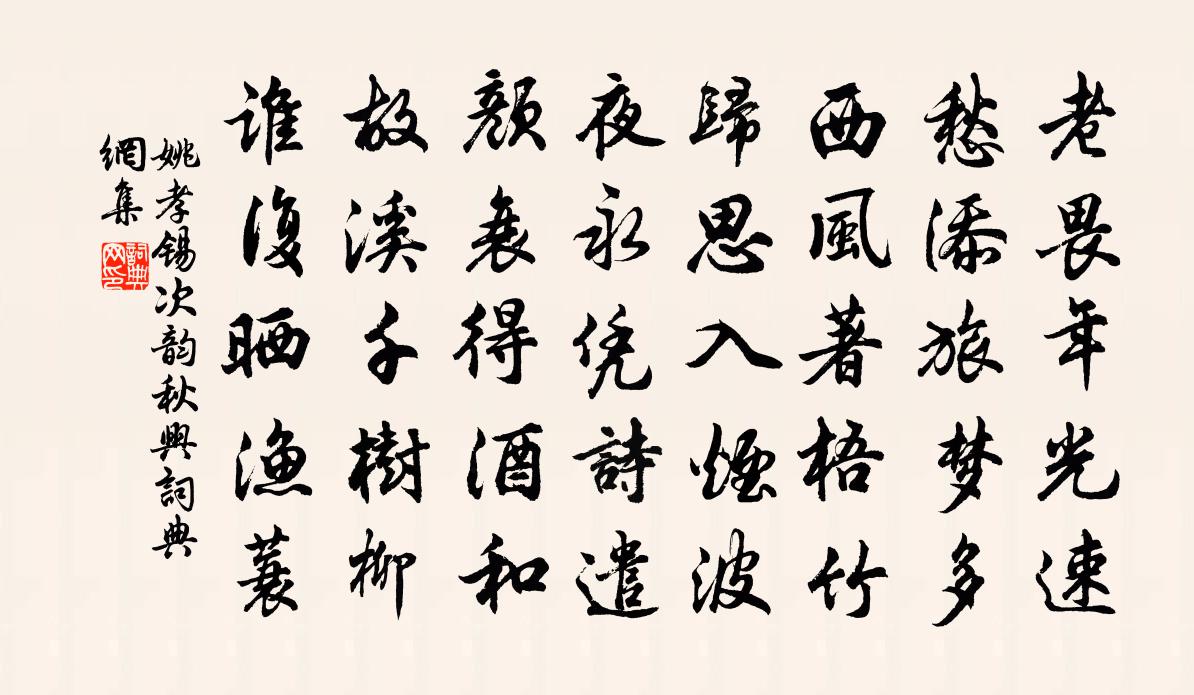 老畏年光速
愁添旅梦多
西風著梧竹
歸思入煙波
夜永凭詩遣
顏衰得酒和
故溪千樹柳
谁復晒漁蓑
姚孝锡次韵秋興詞典
網集
詞典
网印